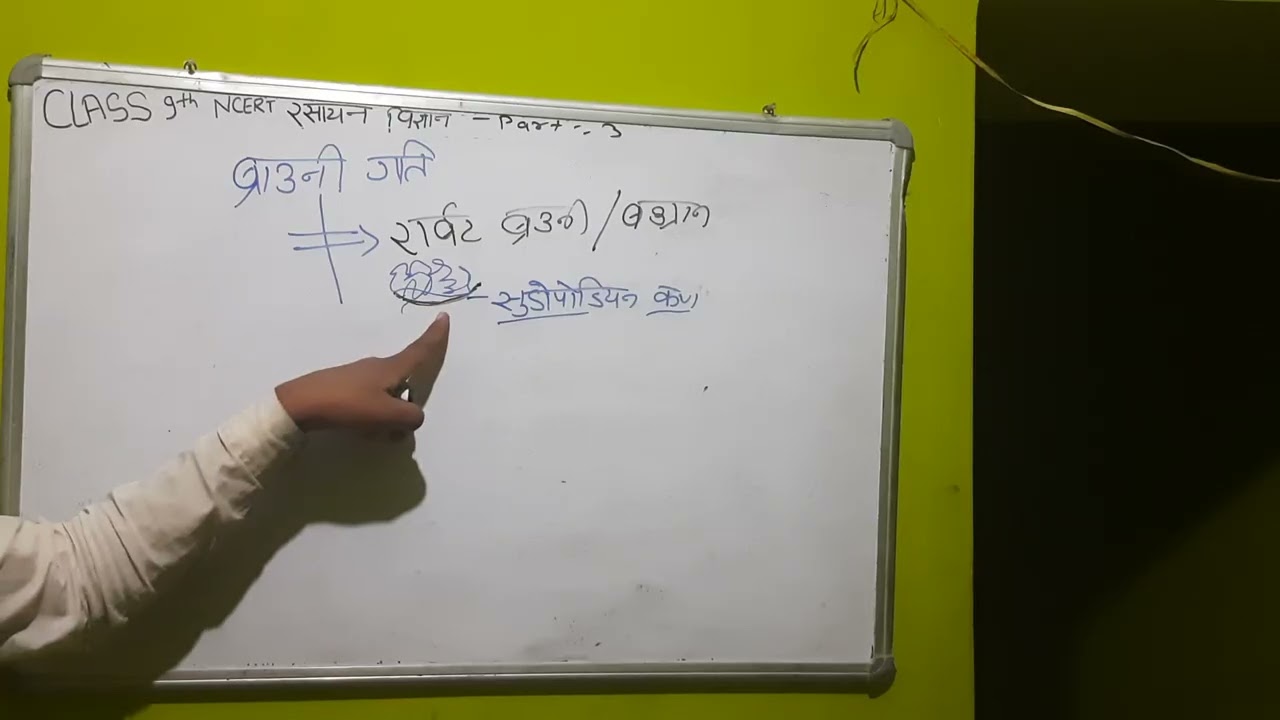 CLASS 9th NCERT रसायन विज्ञान - Part :- 3
ब्राउनी गति
रार्वट ब्रउनी / ब्रउान
सुडोपोडियन कण